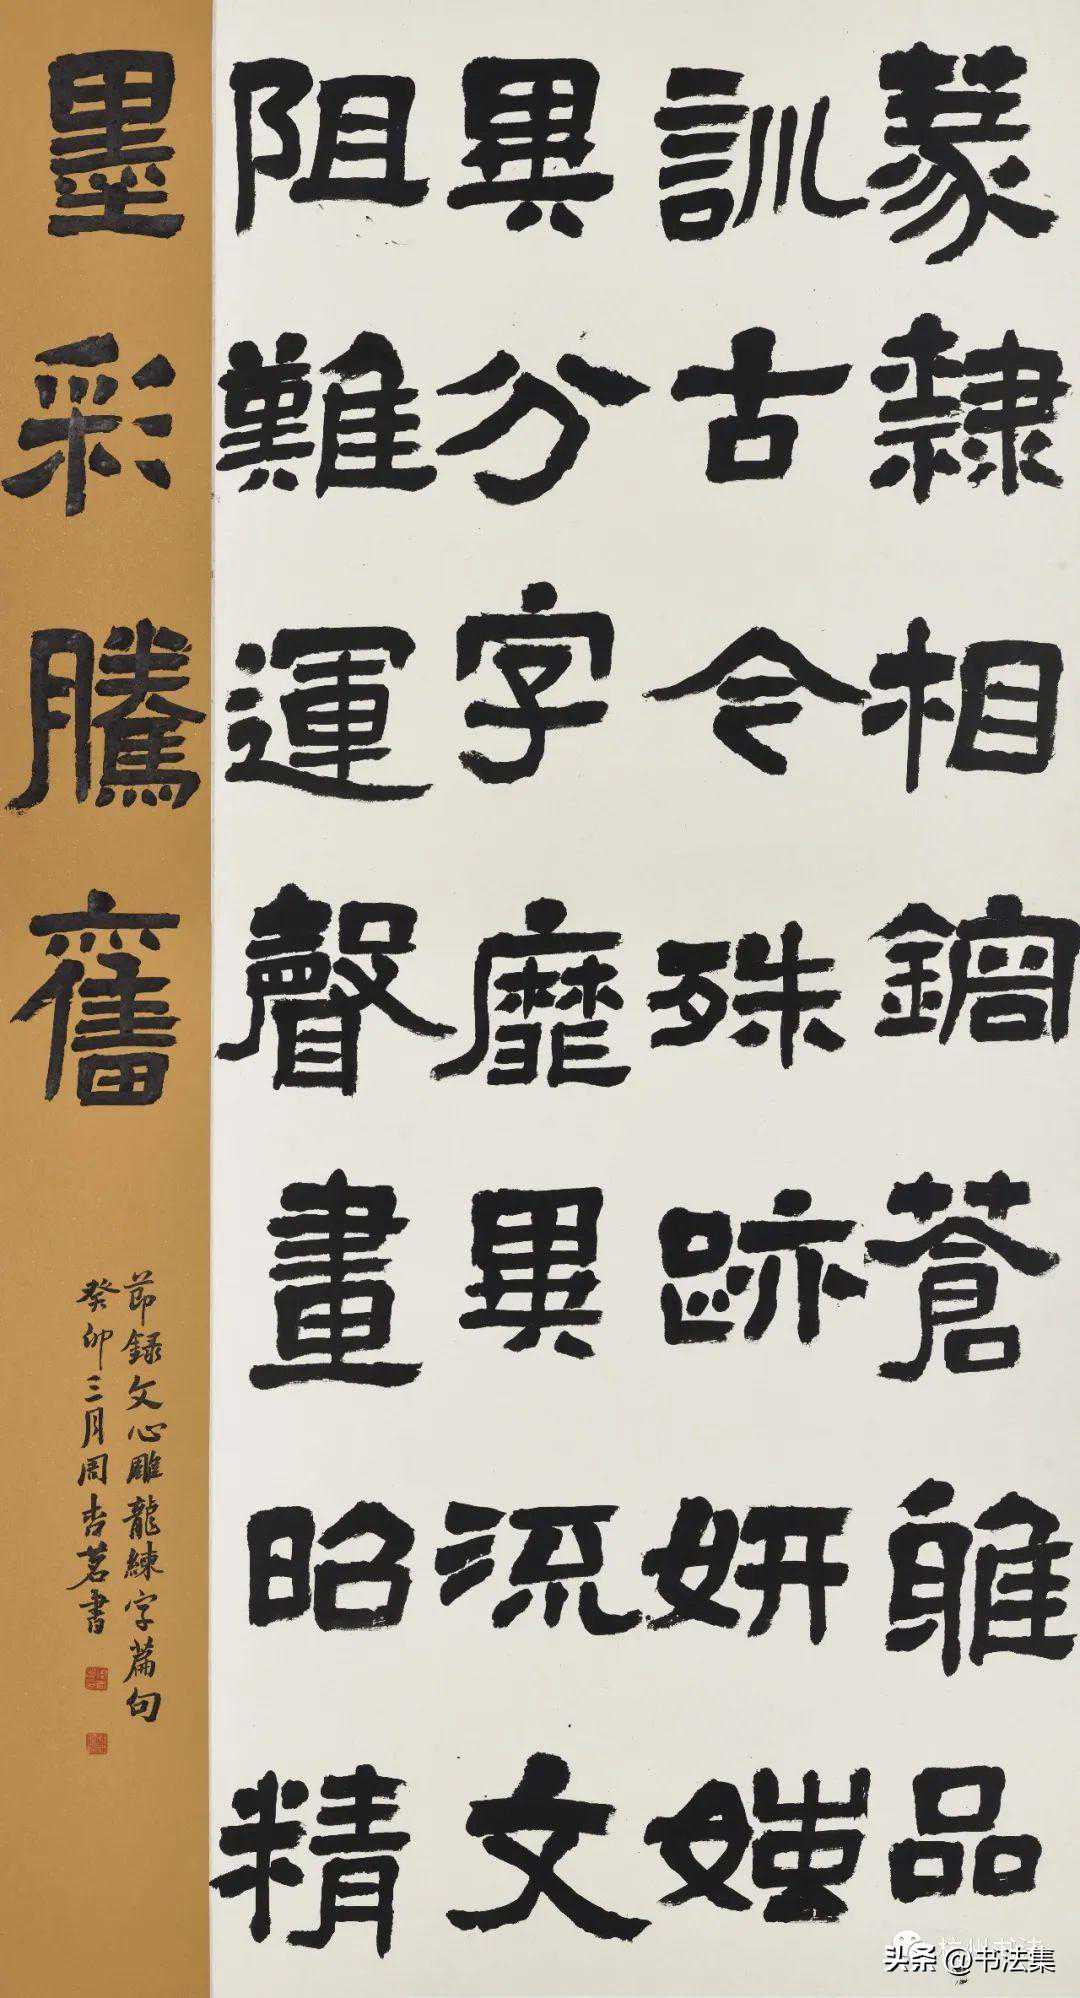 篆隸相鎔蒼雅品
訓古今殊跡妍媸
異分字靡異流文
阻難運聲畫昭精
墨彩騰奮
節録文心雕龍練字篇句
癸卯三月周茗書
头条 @书法集